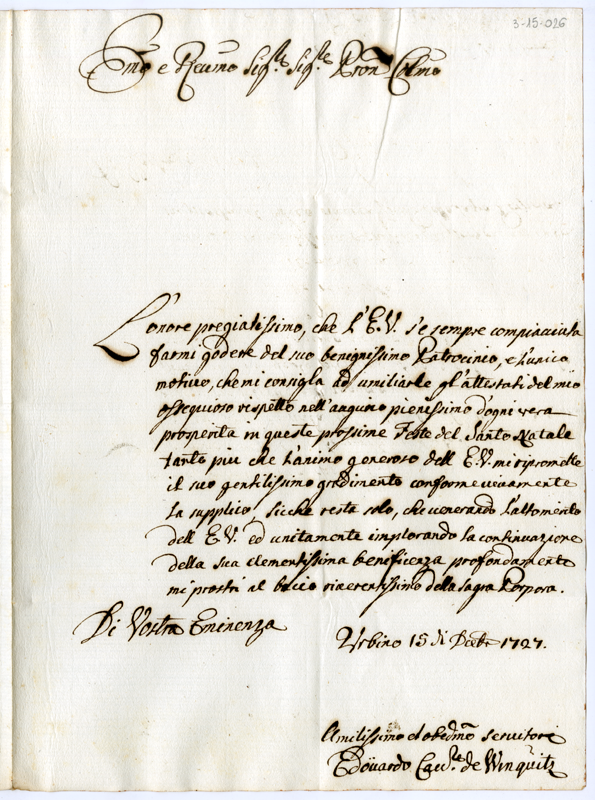 3-15-026
Emo e Reumo Sig.re Sig.re Pron Colmo
L'onore pregiatissimo, che l'E.V. s'è sempre compiacciuta
farmi godere del suo benignissimo Patrocinio, è l'unico
motivo, che mi consigla ad umiliarle gl'attestati del mio
ossequioso rispetto nell'augurio pienissimo d'ogni vera
prosperità in queste prossime Feste del Santo Natale
tanto più che l'animo generoso dell E.V. mi ripromette
il suo gentilissimo gradimento conforme vivamente
la supplico, sicche resta solo, che venerando l'alto merito
dell E.V. ed unitamente implorando la continuazione
della sua clementissima beneficenza profondamente
mi prostri al bacio riverentissimo della Sagra Porpora.
Di Vostra Eminenza
Urbino 15 di Dcebr 1727.
Umilissimo ed obedmo servitore
Edöuardo Cau.re de Winquitz